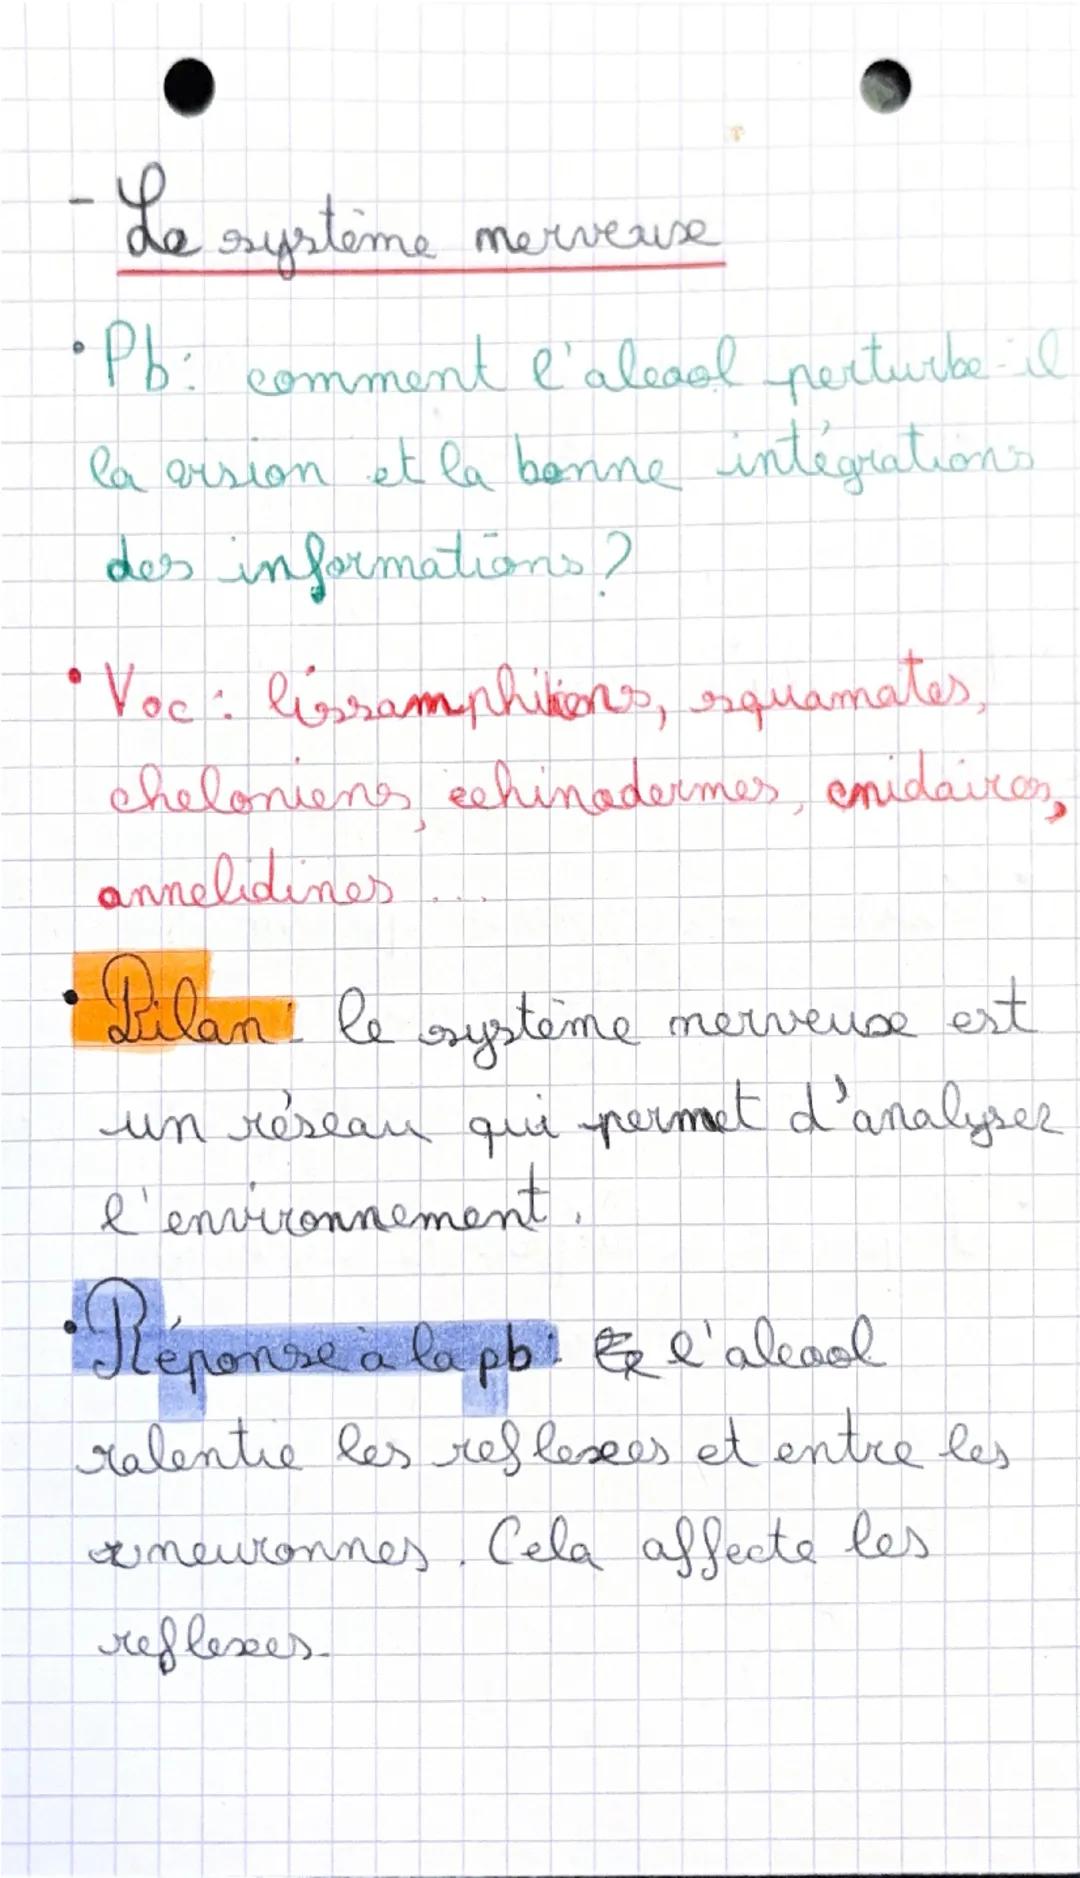 - Le système nerveuse
• Pb: comment l'alcool perturbe-il
la vision et la bonne intégrations
des informations ?
• Voc : lissamphibiens, squamates,
cheloniens, echinodermes, cnidaires,
annelidines ...
• Bilan : le système nerveuse est
un réseau qui permet d'analyser
l'environnement.
• Réponse à la pb : l'alcool
ralentie les reflexes et entre les
neuronnes. Cela affecte les
reflexes.